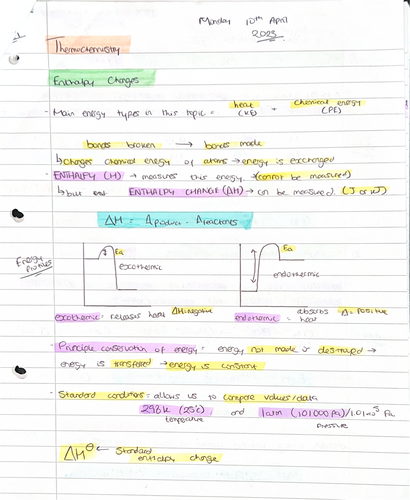 Monday 10th April
2023
Thermochemistry
Enthalpy Changes
- Main energy types in this topic = heat (KE) + Chemical energy (PE)
bonds broken → bonds made
↳ changes chemical energy of atoms → energy is exchanged
- ENTHALPY (H) → measures this energy → (cannot be measured)
↳ but ENTHALPY CHANGE (ΔH) → can be measured. (J or kJ)
ΔH = Δproduct - Δreactants
Energy Profiles
Ea
exothermic
Ea
endothermic
exothermic = releases heat ΔH=negative
endothermic = absorbs heat Δ= positive
- Principle conservation of energy = energy not made or destroyed →
energy is transferred → energy is constant
- Standard conditions = allows us to compare values/data
298K (25°C) and 1atm (101000Pa)/1.01x10⁵ Pa
temperature pressure
ΔH⊖ ← Standard
enthalpy change